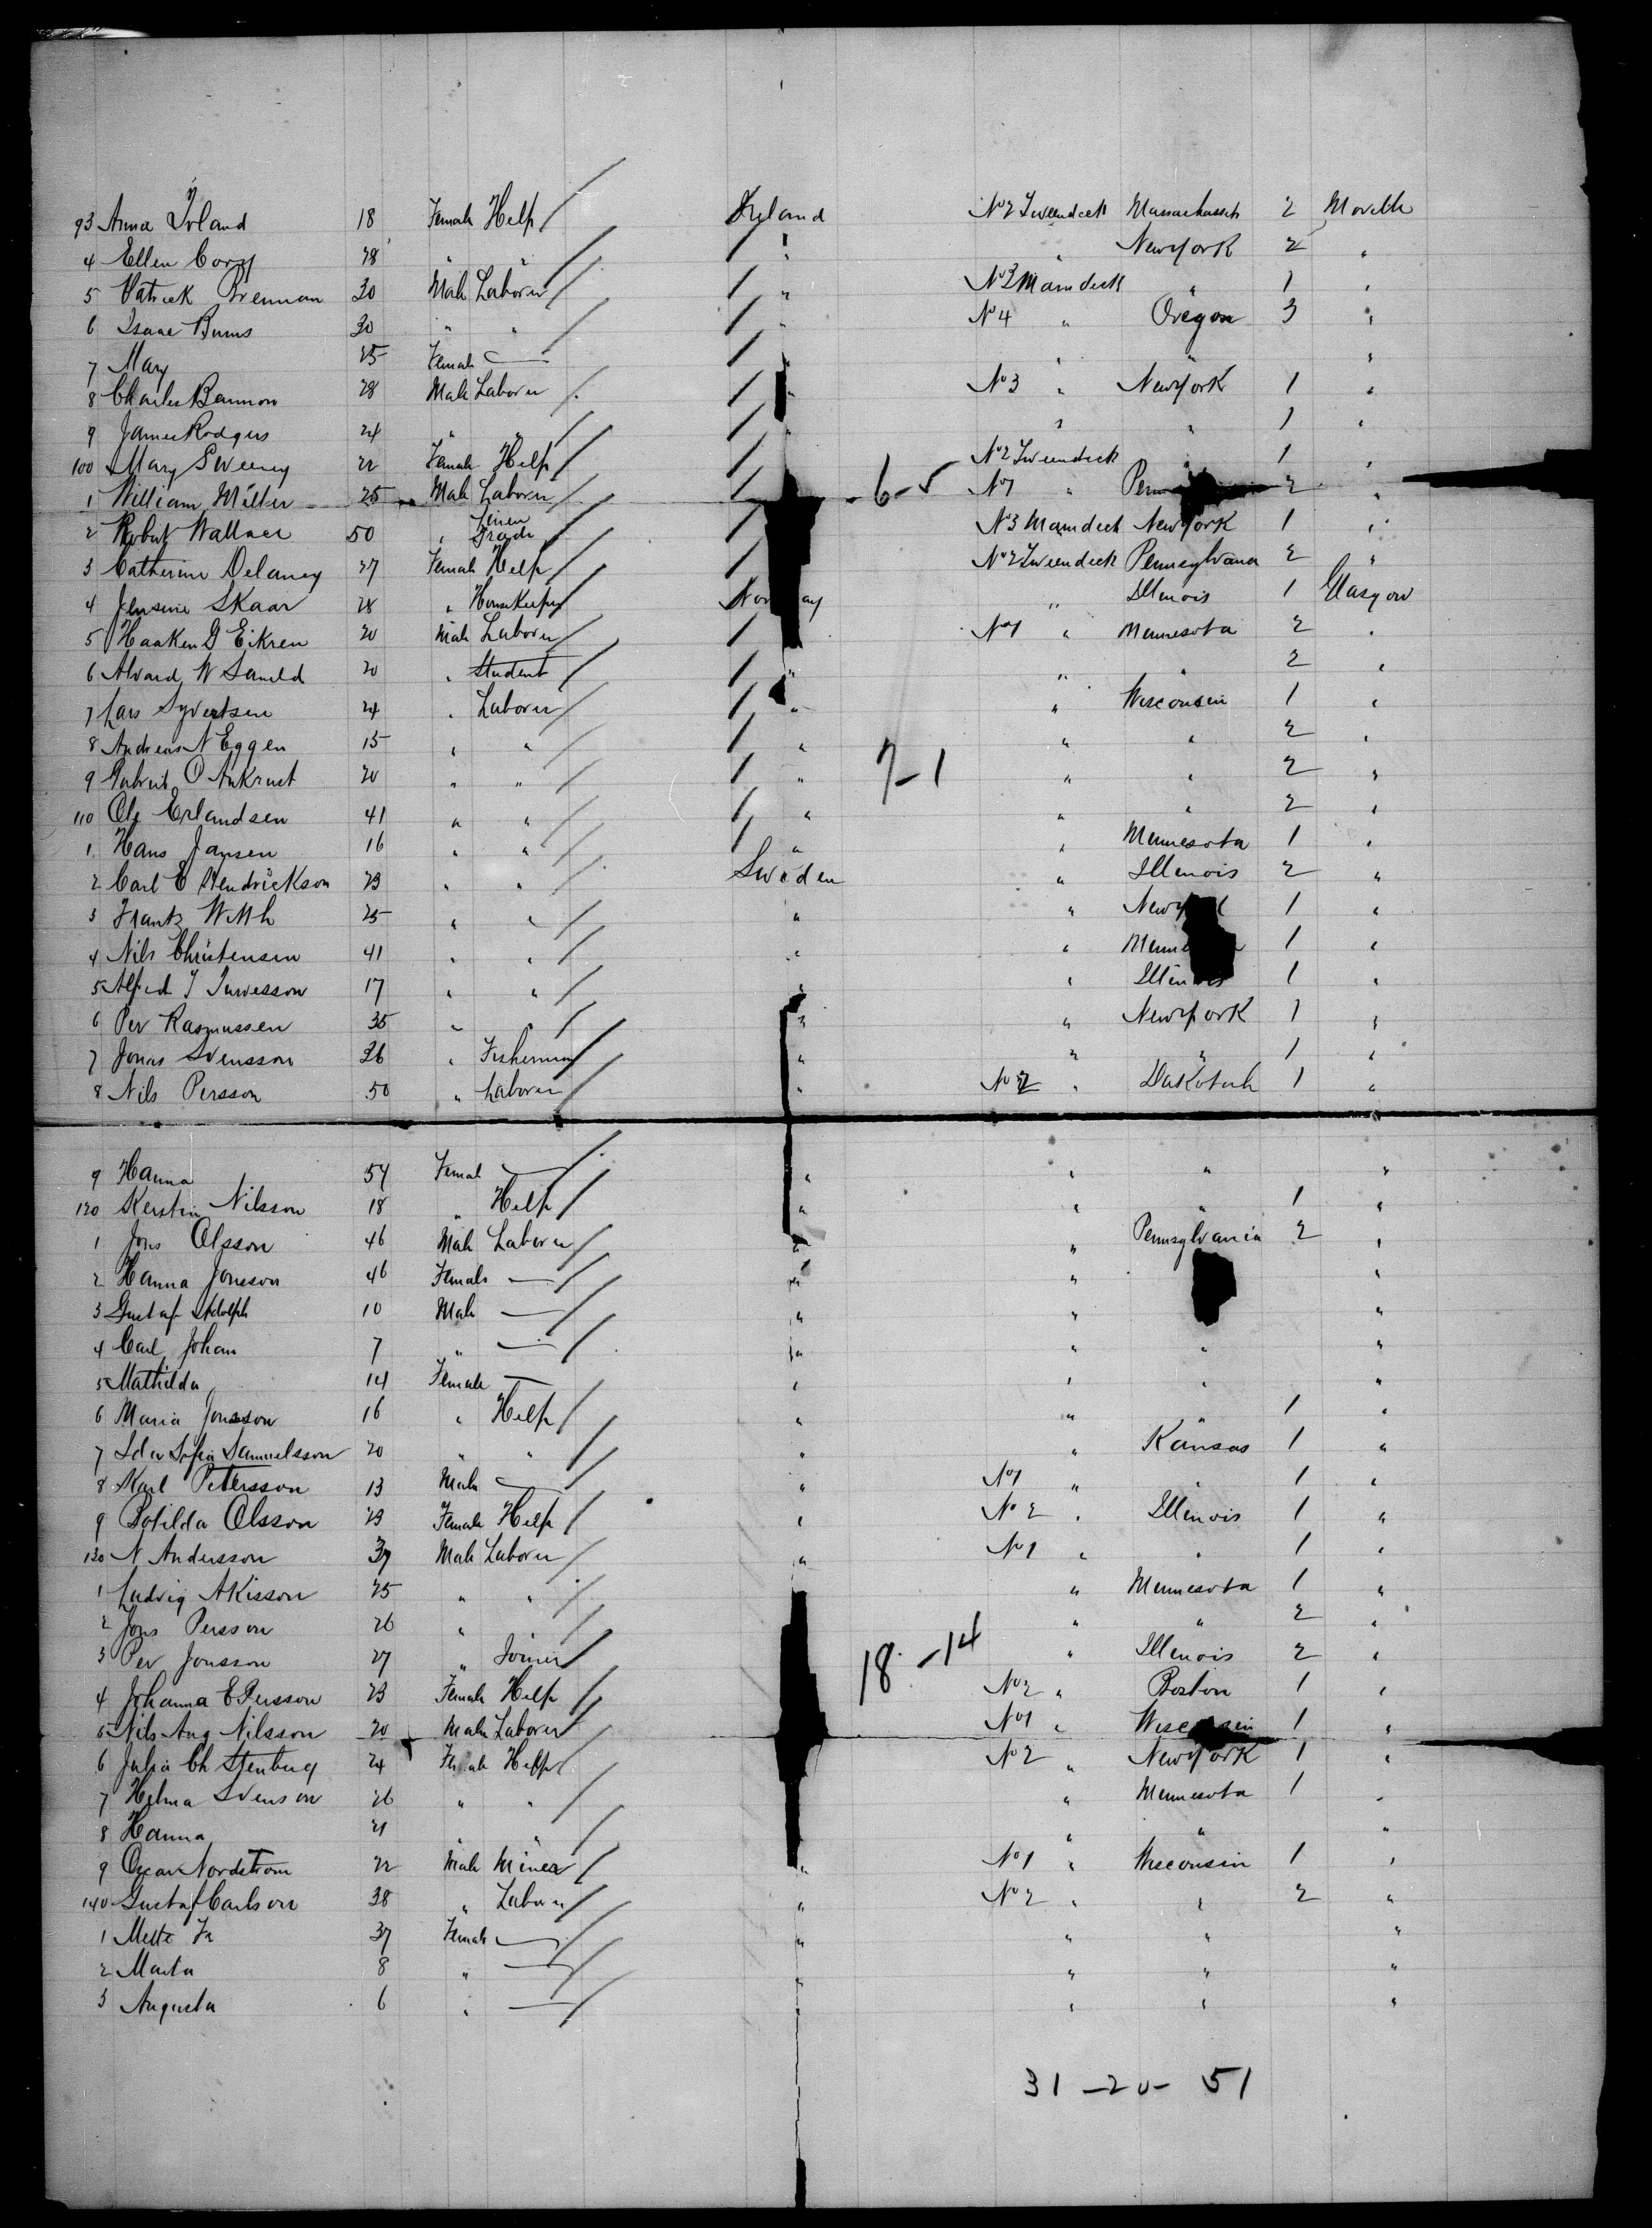 93 Anna Toland 18 Female Help / Ireland No 2 Tweendeck Massachussets 2 Moville
4 Ellen Cory 28 " " / / " " New York 2 "
5 Patrick Brennan 30 Male Laborer / / " No 3 Maindeck " 1 "
6 Isaac Burns 30 " " / / " No 4 " Oregon 3 "
7 Mary 25 Female — / " " " "
8 Charles Bannon 28 Male Laborer / / " No 3 " New York 1 "
9 James Rodgers 24 " " / / " " " 1 "
100 Mary Sweeney 22 Female Help / / No 2 Tweendeck " 1 "
1 William Miller 25 Male Laborer / / - 6 - 5 No 1 " 2 "
2 Robert Wallace 50 " Linen Trade / / No 3 Maindeck New York 1 "
3 Catherine Delaney 27 Female Help / / No 2 Tweendeck Pennsylvana 2 "
4 Jensine Skaar 28 " Housekeeper Nor ay " Illinois 1 Glasgow
5 Haaken G Eikren 20 Male Laborer / / No 1 " Minnesota 2 "
6 W 20 " Student / / " " " 2 "
7 Lars Syvertsen 24 " Laborer / / " " Wisconsin 1 "
8 Andreas N Eggen 15 " " / / " " " 2 "
9 O 20 " " / / " 7 - 1 " " 2 "
110 Ole Erlandsen 41 " " / / " " " 2 "
1 Hans Jansen 16 " " / / " " Minnesota 1 "
2 Carl E Hendrickson 23 " " / Sweden " Illinois 2 "
3 Frantz 25 " " / " " New 1 "
4 Nils Christensen 41 " " / " " 1 "
5 Alfred 17 " " / " " Illinois 1 "
6 Per Rasmussen 35 " " / " " New York 1 "
7 Jonas Svensson 36 " Fisherman / " " " 1 "
8 Nils Persson 50 " Laborer / " No 2 " Dakotah 1 "
9 Hanna 54 Femal — / " " " "
120 Kerstin Nilsson 18 " Help / " " " 1 "
1 Jons Olsson 46 Male Laborer / " " Pennsylvania 2 "
2 Hanna Jonsson 46 Female — / " " "
3 Gustaf Adolph 10 Male — / " " "
4 Carl Johan 7 " — / " " " "
5 Mathilda 14 Female — " " " "
6 Maria Jonsson 16 " Help / " " " 1 "
7 Ida Sofia Samuelsson 20 " " / " " Kansas 1 "
8 Karl Petersson 13 Male — / " No 1 " " 1 "
9 Botilda Olsson 23 Female Help / " No 2 " Illinois 1 "
130 N Andersson 37 Male Laborer / " No 1 " " 1 "
1 Ludvig Akisson 25 " " / " Minnesota 1 "
2 Jons Persson 26 " / " " 2 "
3 Per Jonsson 27 " Joiner / 18 - 14 " Illinois 2 "
4 Johanna E Persson 23 Female Help / No 2 " Boston 1 "
5 Nils Aug Nilsson 20 Male Laborer / No 1 " Wisconsin 1 "
6 Julia Ch Stenberg 24 Female Help / No 2 " New York 1 "
7 Helma Svenson 26 " " / " Minnesota 1 "
8 Hanna 21 " " / " " "
9 Oscar Nordstrom 22 Male Miner / " No 1 " Wisconsin 1 "
140 Gustaf Carlson 38 " Laborer / " No 2 " " 2 "
1 Mette 37 Female — / " " " "
2 Marta 8 " — / " " " "
3 Augusta 6 " — / " " " "
31 - 20 - 51